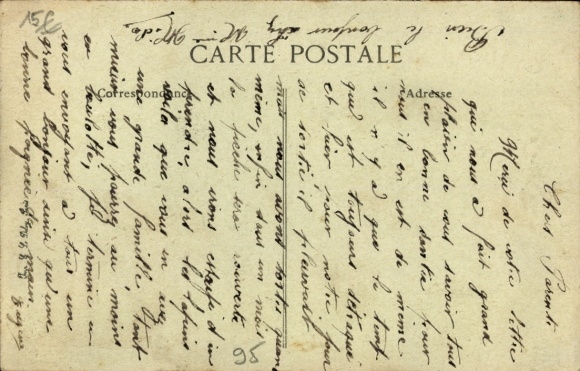 CARTE POSTALE
Correspondance
Adresse
Chers Parents
Merci de votre lettre
qui nous a fait grand
plaisir de vous savoir tous
en bonne santée pour
nous il en est de même
il n'y a que le temps
qui est toujours détraqué
et hier pour notre jour
de sortie il pleuvait
mais nous avons sortis quand
même, enfin dans un mois
la pêche sera ouverte
et nous irons
prendre, alors les
voilà que vous en avez
une grande famille tant
mieux vous pourrez au moins
en boulotter, je termine en
vous envoyant à tous un
grand bonjour ainsi qu'une
bonne poignée de main
Eugène
Bien le bonjour chez Mme
15f
95